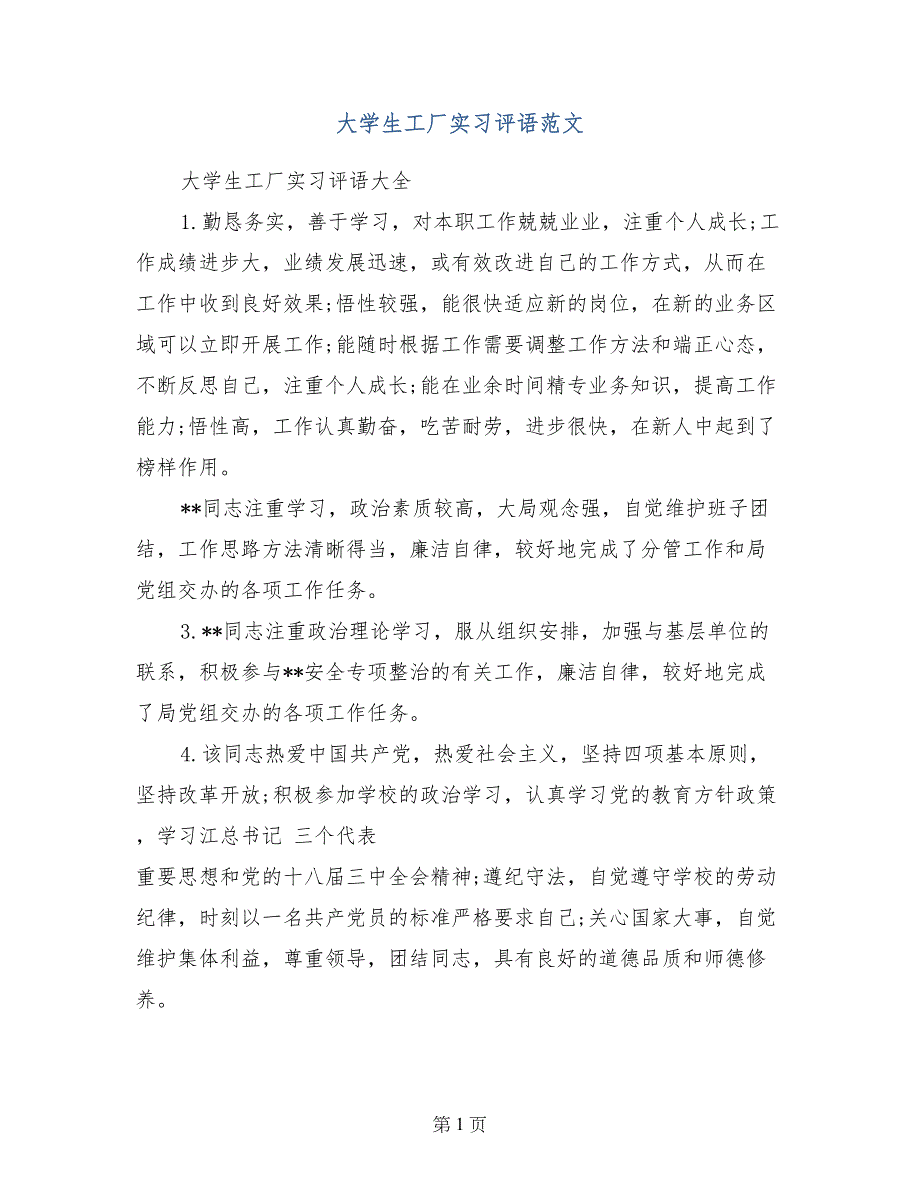 大学生工厂实习评语范文
大学生工厂实习评语大全
1.勤恳务实，善于学习，对本职工作兢兢业业，注重个人成长;工
作成绩进步大，业绩发展迅速，或有效改进自己的工作方式，从而在
工作中收到良好效果;悟性较强，能很快适应新的岗位，在新的业务区
域可以立即开展工作;能随时根据工作需要调整工作方法和端正心态，
不断反思自己，注重个人成长;能在业余时间精专业务知识，提高工作
能力;悟性高，工作认真勤奋，吃苦耐劳，进步很快，在新人中起到了
榜样作用。
**同志注重学习，政治素质较高，大局观念强，自觉维护班子团
结，工作思路方法清晰得当，廉洁自律，较好地完成了分管工作和局
党组交办的各项工作任务。
3.**同志注重政治理论学习，服从组织安排，加强与基层单位的
联系，积极参与**安全专项整治的有关工作，廉洁自律，较好地完成
了局党组交办的各项工作任务。
4.该同志热爱中国共产党，热爱社会主义，坚持四项基本原则，
坚持改革开放;积极参加学校的政治学习，认真学习党的教育方针政策
，学习江总书记 三个代表
重要思想和党的十八届三中全会精神;遵纪守法，自觉遵守学校的劳动
纪律，时刻以一名共产党员的标准严格要求自己;关心国家大事，自觉
维护集体利益，尊重领导，团结同志，具有良好的道德品质和师德修
养。
第 1 页